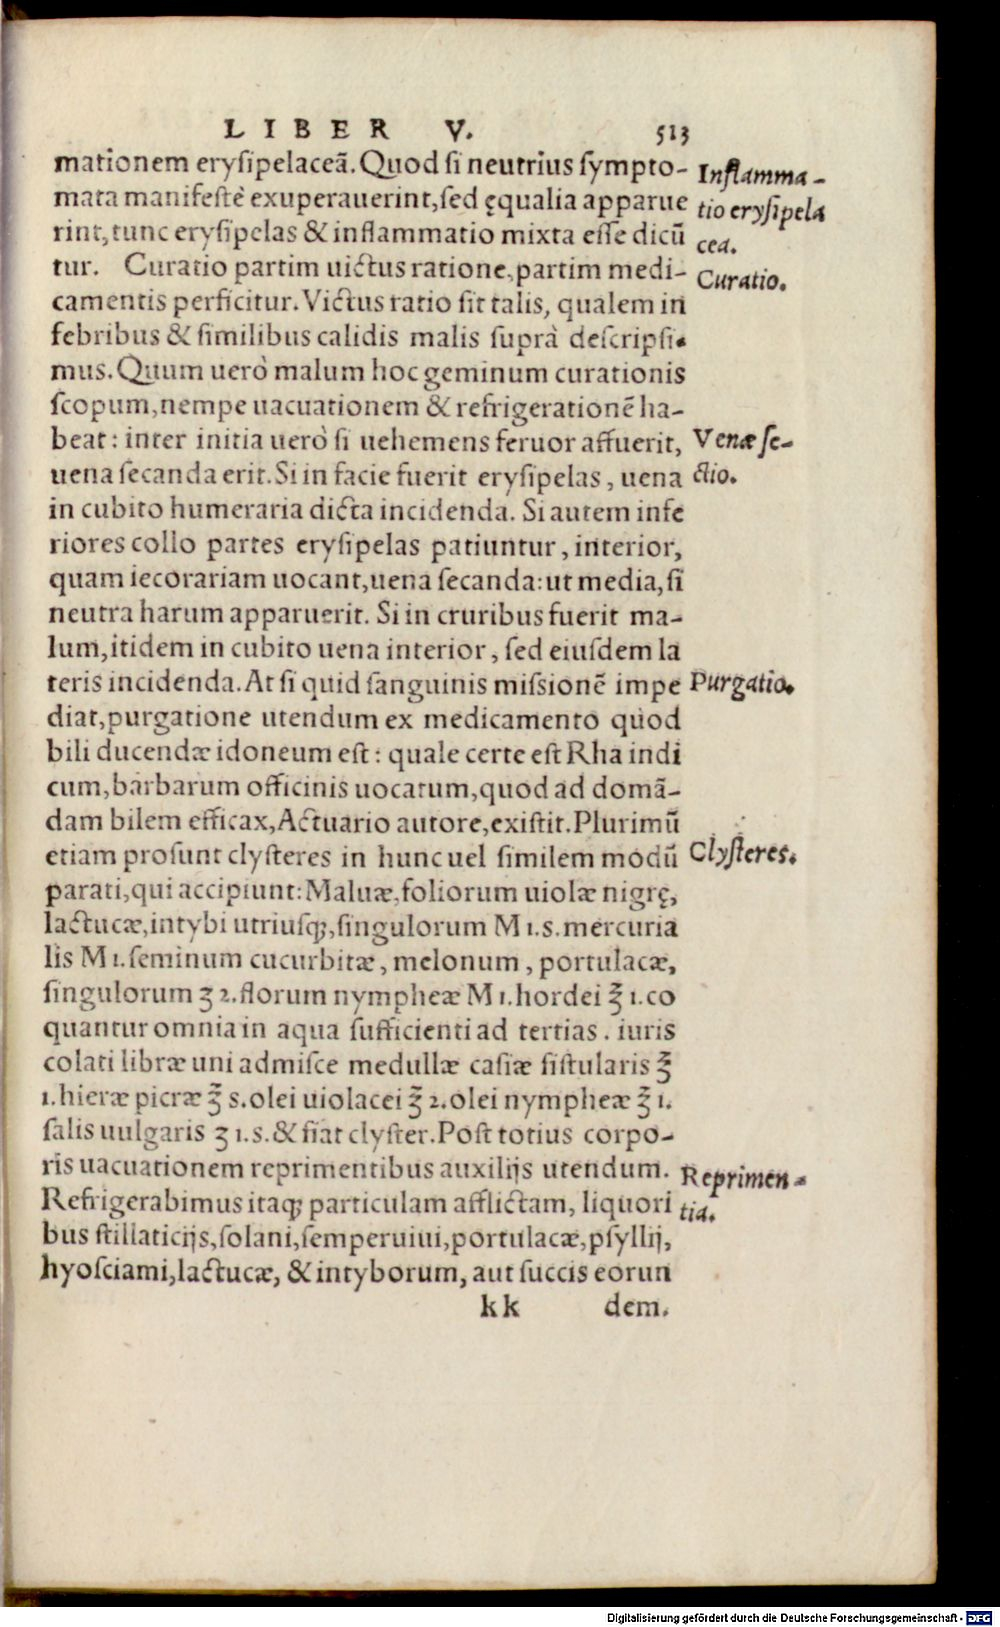 LIBER V. 513
mationem erysipelaceā. Quod si neutrius sympto-
mata manifestè exuperauerint, sed ęqualia apparue
rint, tunc erysipelas & inflammatio mixta esse dicū
tur. Curatio partim uictus ratione, partim medi-
camentis perficitur. Victus ratio sit talis, qualem in
febribus & similibus calidis malis suprà descripsi-
mus. Quum uerò malum hoc geminum curationis
scopum, nempe uacuationem & refrigerationē ha-
beat: inter initia uerò si uehemens feruor affuerit,
uena secanda erit. Si in facie fuerit erysipelas, uena
in cubito humeraria dicta incidenda. Si autem infe
riores collo partes erysipelas patiuntur, interior,
quam iecorariam uocant, uena secanda: ut media, si
neutra harum apparuerit. Si in cruribus fuerit ma-
lum, itidem in cubito uena interior, sed eiusdem la
teris incidenda. At si quid sanguinis missionē impe
diat, purgatione utendum ex medicamento quod
bili ducendæ idoneum est: quale certe est Rha indi
cum, barbarum officinis uocatum, quod ad domā-
dam bilem efficax, Actuario autore, existit. Plurimū
etiam prosunt clysteres in hunc uel similem modū
parati, qui accipiunt: Maluæ, foliorum uiolæ nigrę,
lactucæ, intybi utriusq;, singulorum M 1. s. mercuria
lis M 1. seminum cucurbitæ, melonum, portulacæ,
singulorum ʒ 2. florum nympheæ M 1. hordei ℥ 1. co
quantur omnia in aqua sufficienti ad tertias. iuris
colati libræ uni admisce medullæ casiæ fistularis ℥
1. hieræ picræ ℥ s. olei uiolacei ℥ 2. olei nympheæ ℥ 1.
salis uulgaris ʒ 1. s. & fiat clyster. Post totius corpo-
ris uacuationem reprimentibus auxilijs utendum.
Refrigerabimus itaq; particulam afflictam, liquori
bus stillaticijs, solani, semperuiui, portulacæ, psyllij,
hyosciami, lactucæ, & intyborum, aut succis eorun
kk dem.
Inflamma-
tio erysipela
cea.
Curatio.
Venæ se-
ctio.
Purgatio.
Clysteres.
Reprimen-
tia.
Digitalisierung gefördert durch die Deutsche Forschungsgemeinschaft - DFG